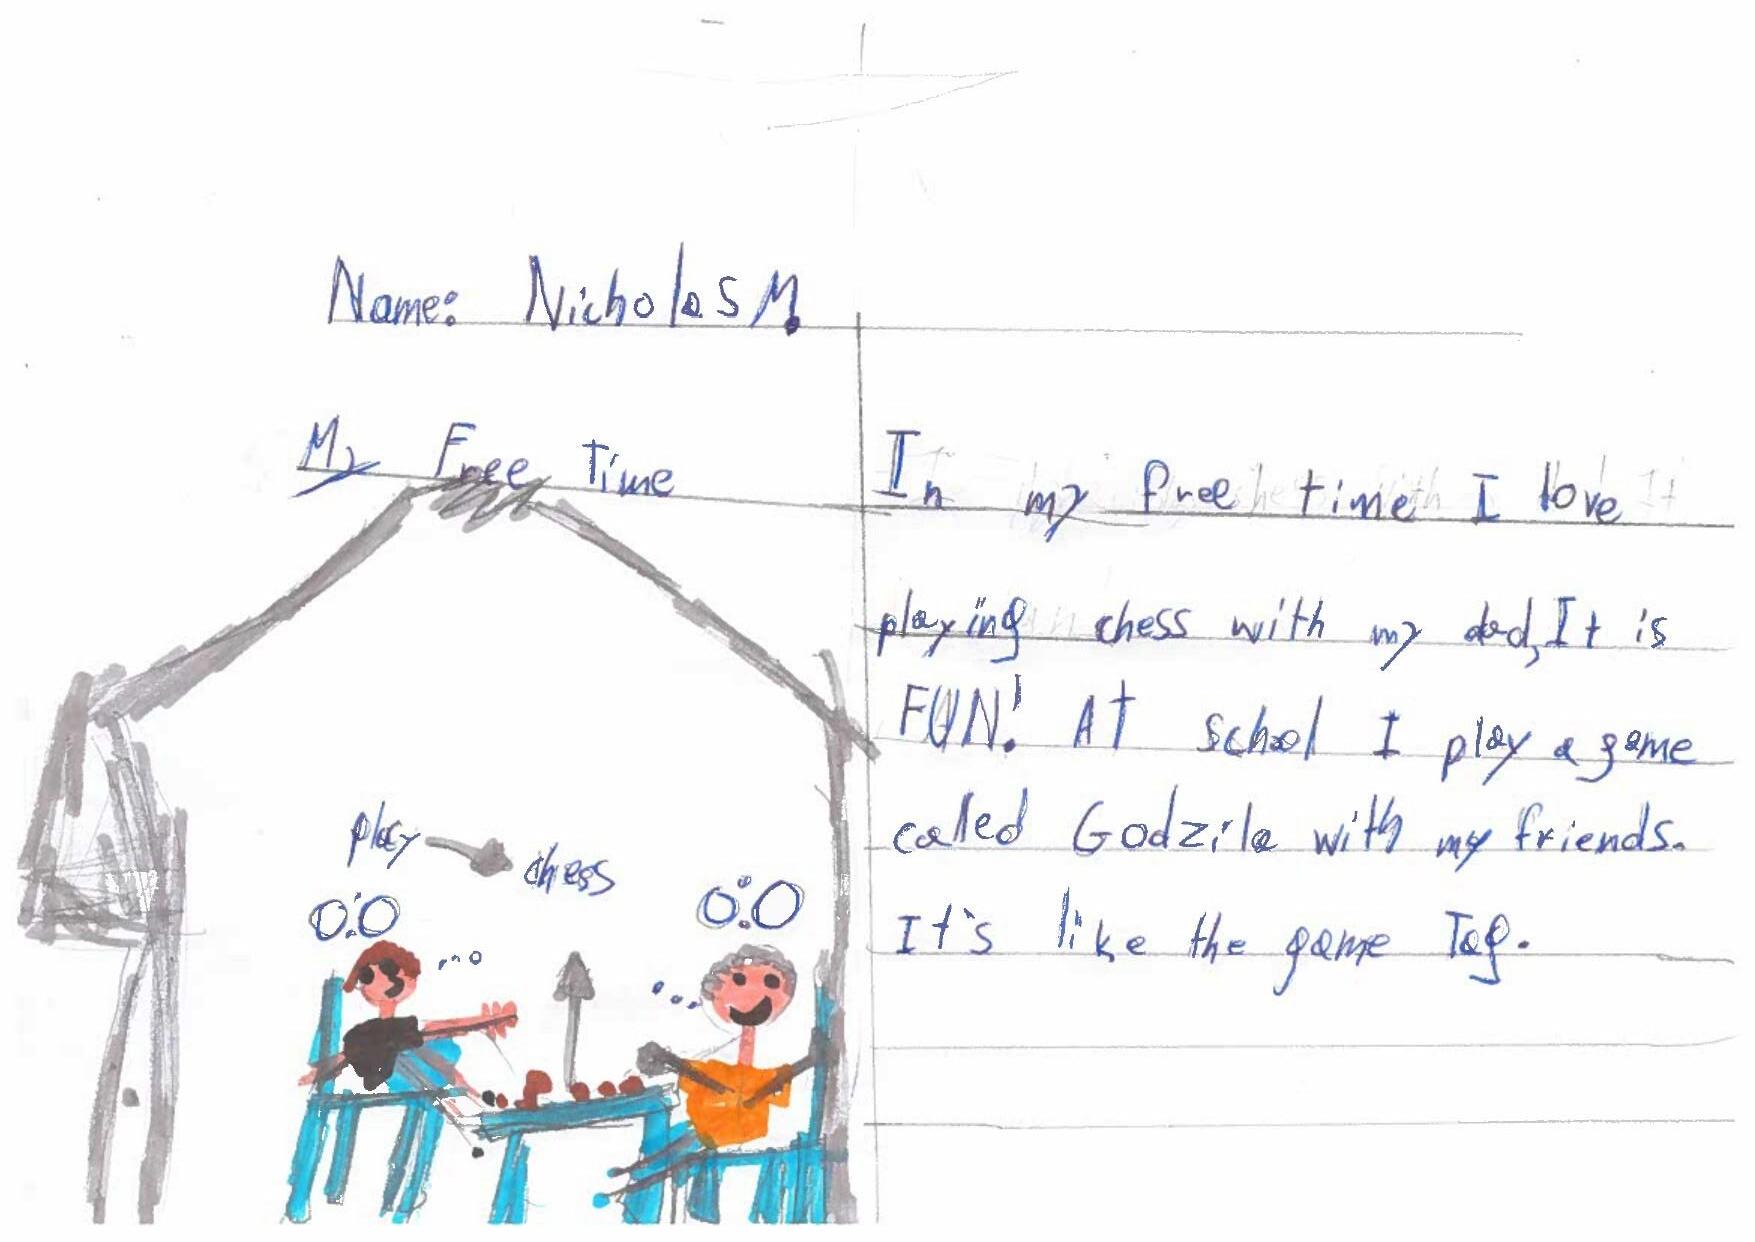 Name: Nicholas M.
My Free Time
In my free time I love
playing chess with my dad, It is
FUN! At school I play a game
called Godzila with my friends.
It's like the game Tag.
play
chess
0:0
0:0